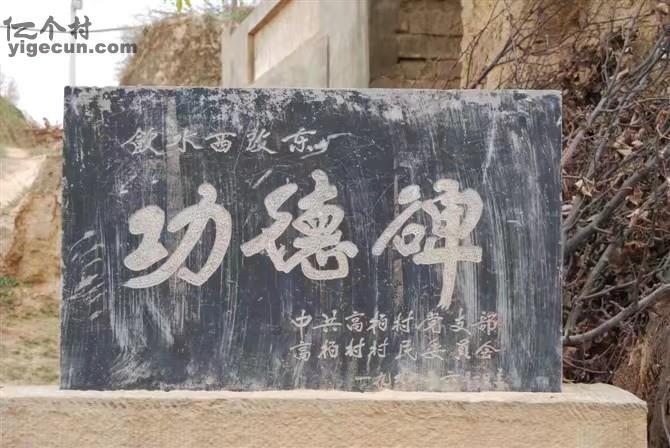 亿个村
yigecun.com
飲水西敬东
功德碑
中共高柏村党支部
高柏村村民委员会
一九